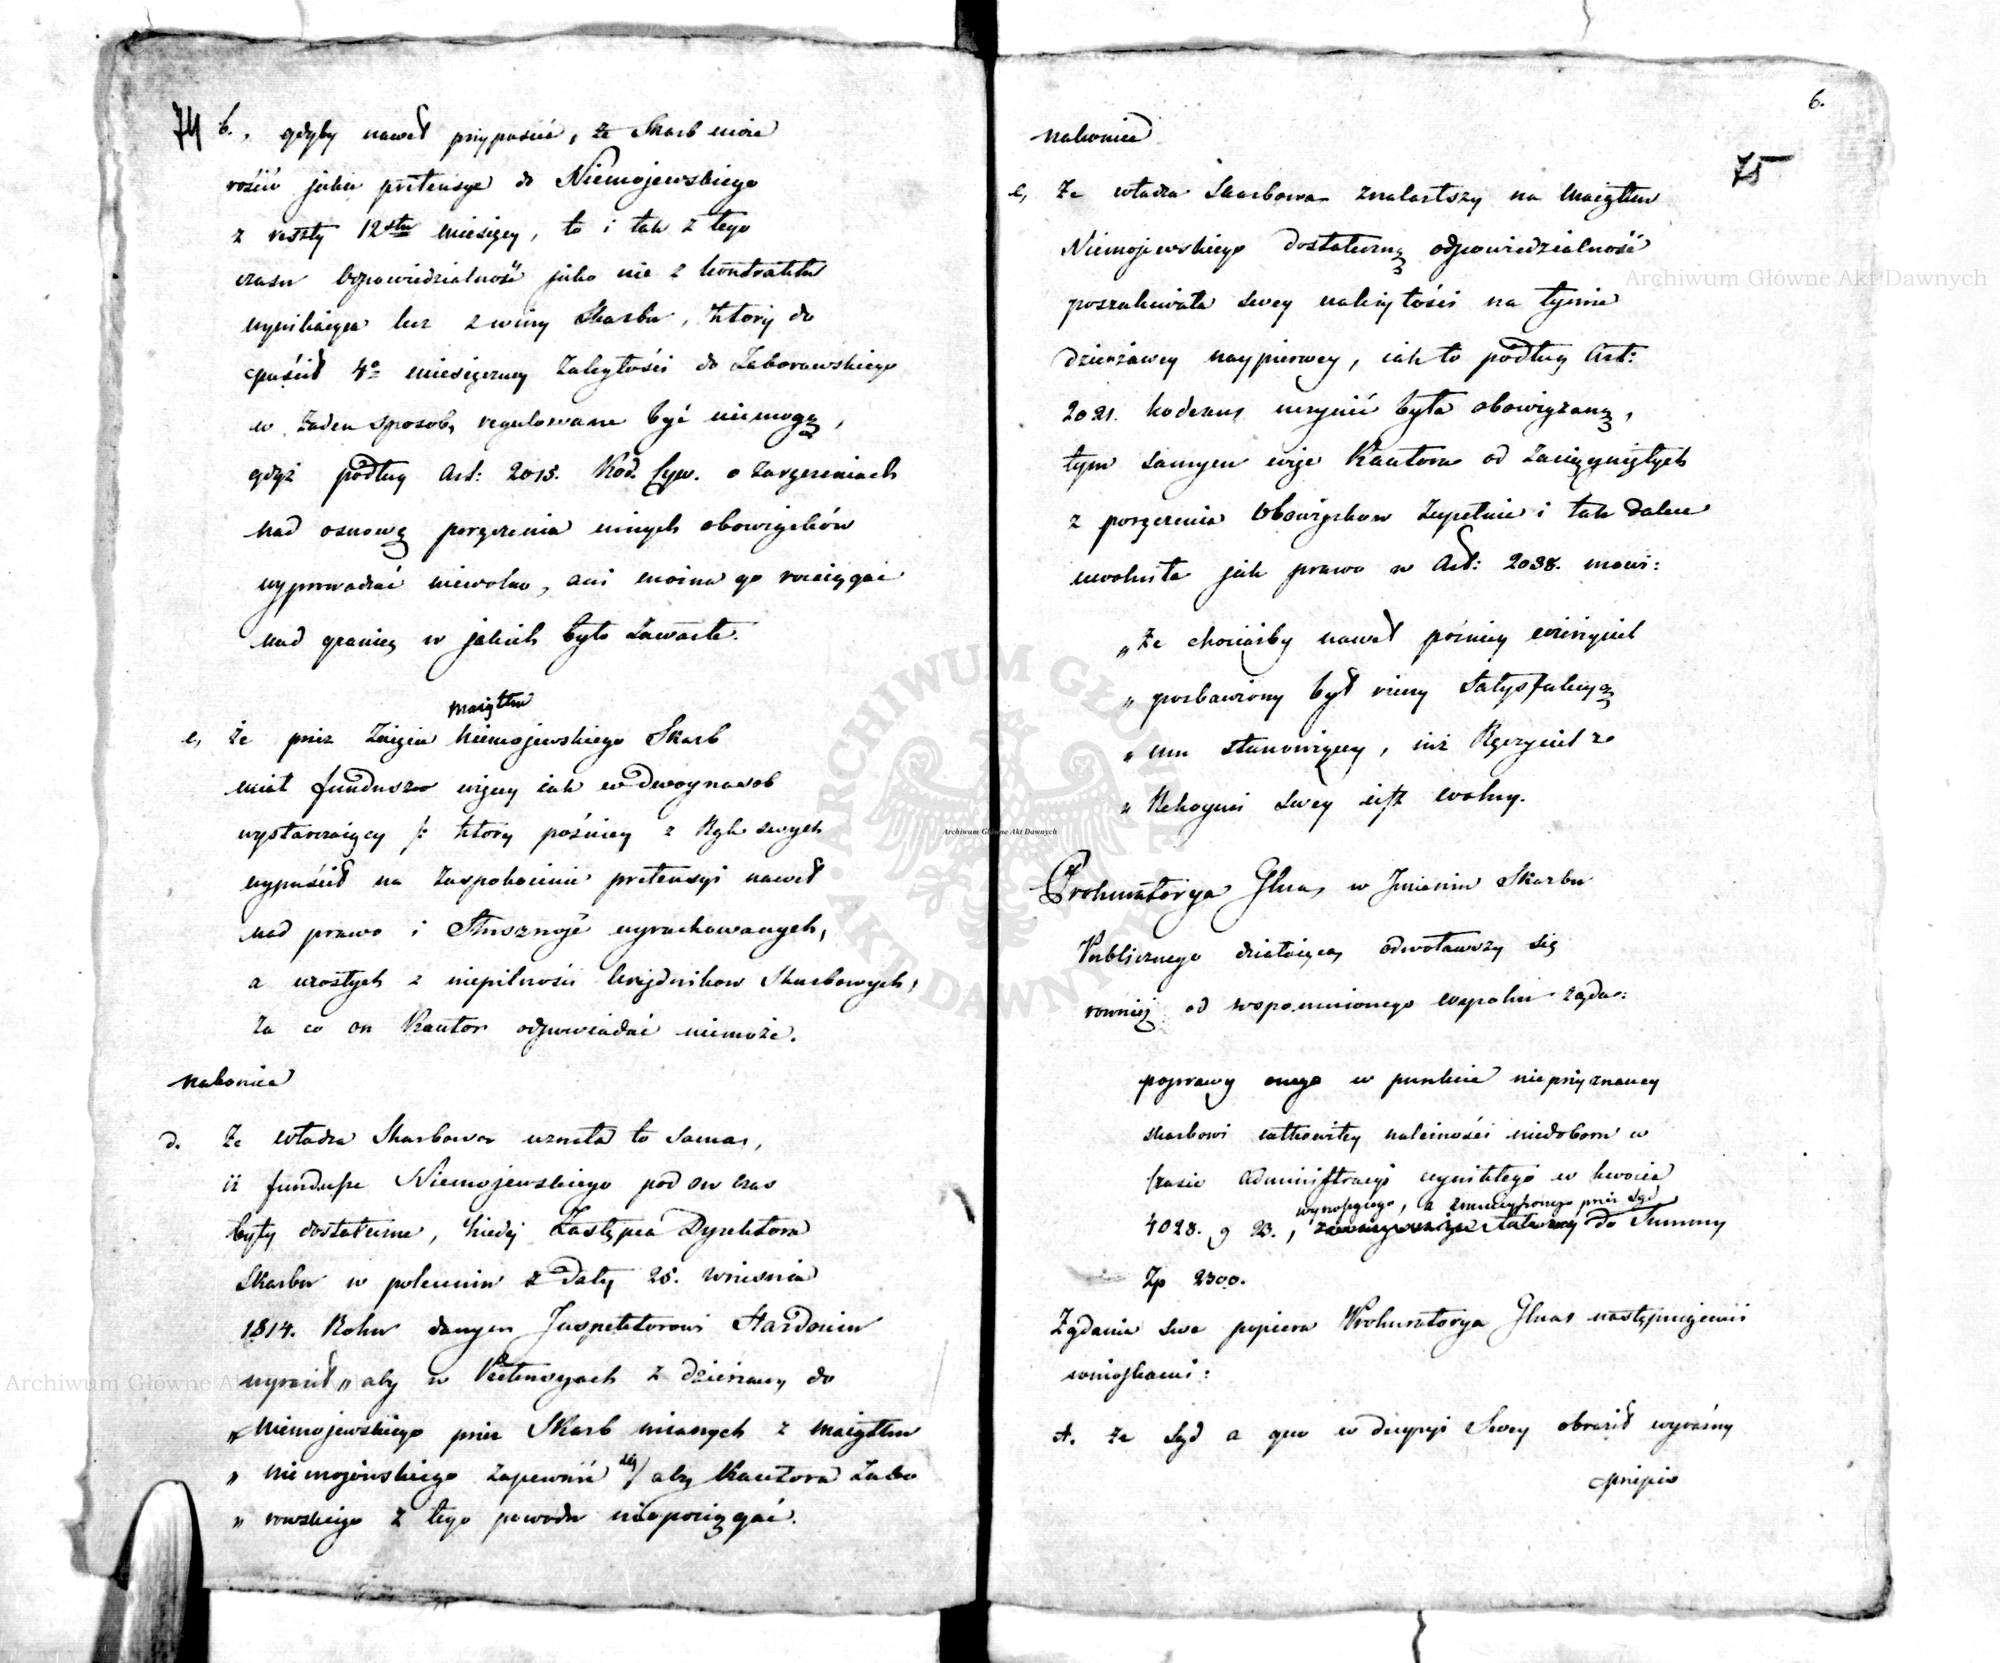 74
b., gdyby nawet przypuścić, że Skarb może
rościć jaką pretensye do Niemojewskiego
z reszty 12stu miesięcy, to i tak z tego
czasu odpowiedzialność jako nie z kontraktu
wynikaiąca lecz z winy Skarbu, który do
puścił 4o miesięczney zaległości do Zaborowskiego
w żaden sposób, regulowane być niemogą,
gdyż podług Art: 2015. Kod. Cyw. o zaręczeniach
nad osnowę poręczenia innych obowiązków
wyprowadzać niewolno, ani można go rozciągać
nad granicę w jakich było zawarte.
maiątku
c, że przez zaięcie Niemojewskiego Skarb
miał fundusz więcey iak w dwoynasob
wystarczaiący /: który poźniey z Rąk swych
wypuścił na zaspokoienie pretensyi nawet
nad prawo i Słuszność wyrachowanych,
a urosłych z niepilności Urzędnikow Skarbowych,
za co on Kautor odpowiadać niemoże.
nakoniec
d. Że władza Skarbowa uznała to sama,
iż fundusze Niemojewskiego pod on czas
były dostateczne, kiedy Zastępca Dyrektora
Skarbu w poleceniu z daty 25. Września
1814. Roku danym Inspektorowi Hardouin
wyraził „aby w Pretensyach z dzierżawy do
„Niemojewskiego przez Skarb mianych z maiątku
„Niemojewskiego zapewnić się/ aby Kautora Zabo
„rowskiego z tego powodu niepociągać.
6.
75
nakoniec
e, Że władza Skarbowa znalazłszy na Maiątku
Niemojewskiego dostateczną odpowiedzialność
poszukiwała swey należytości na tymże
dzierżawcy naypierwey, iak to podług Art:
2021. kodexu uczynić była obowiązaną,
tym samym więc Kautora od zaciągniętych
z poręczenia Obowiązkow zupełnie i tak dalece
uwolniła jak prawo w Art: 2038. mowi:
„Że chociażby nawet poźniey wierzyciel
„pozbawiony był rzeczy Satysfakcyą
„mu stanowiącey, iuż Ręczyciel z
„Rekoymi swey iest wolny.
Prokuratorya Glna, w Imieniu Skarbu
Publicznego działaiąca, odwoławszy się
rownież od wspomnionego wyroku żąda:
poprawy onego w punkcie nieprzyznaney
skarbowi całkowitey należności niedoboru w
czasie Administracyi wynikłego w kwocie
wynoszącego, a zmnieyszonego przez Sąd
4028. g 23., do Summy
Zp 2300.
Żądania swe popiera Prokuratorya Glna następuiącemi
wnioskami:
A. że Sąd a quo w decyzyi Swey obraził wyraźny
przepis